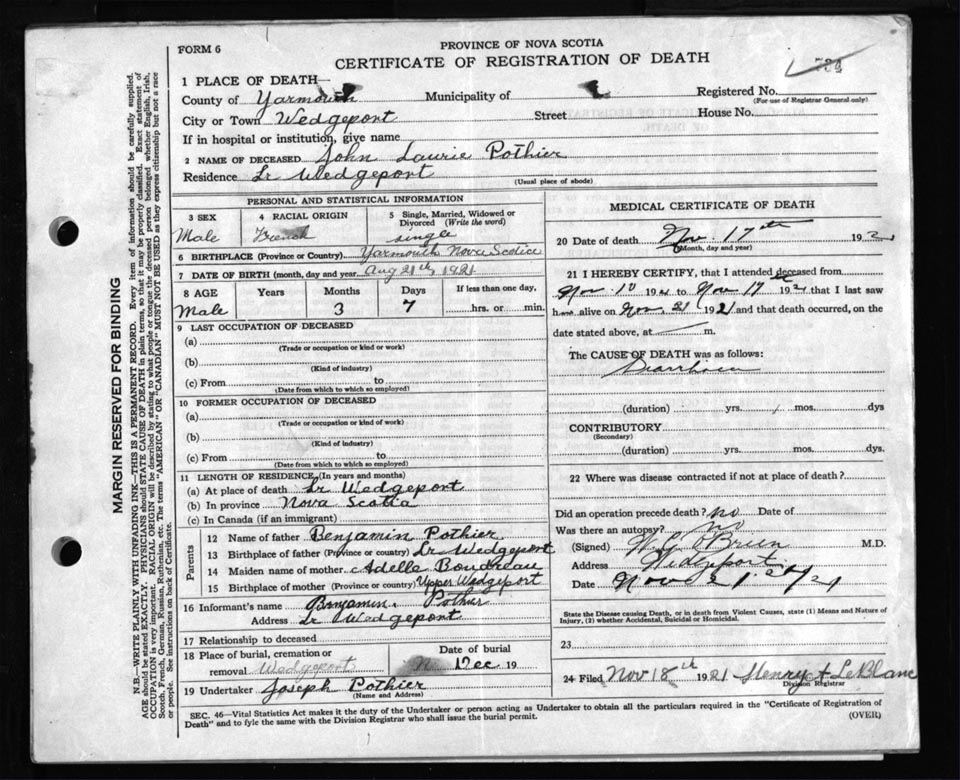 FORM 6
PROVINCE OF NOVA SCOTIA
CERTIFICATE OF REGISTRATION OF DEATH
1 PLACE OF DEATH—
County of Yarmouth Municipality of Registered No.
(For use of Registrar General only)
City or Town Wedgeport Street House No.
If in hospital or institution, give name
2 NAME OF DECEASED John Laurie Pothier
Residence Lr Wedgeport
(Usual place of abode)
PERSONAL AND STATISTICAL INFORMATION
3 SEX
Male
4 RACIAL ORIGIN
French
5 Single, Married, Widowed or
Divorced (Write the word)
single
6 BIRTHPLACE (Province or Country) Yarmouth Nova Scotia
7 DATE OF BIRTH (month, day and year) Aug 21th, 1921
8 AGE Years Months Days If less than one day,
Male 3 7 hrs. or min.
9 LAST OCCUPATION OF DECEASED
(a)
(Trade or occupation or kind or work)
(b)
(Kind of industry)
(c) From to
(Date from which to which so employed)
10 FORMER OCCUPATION OF DECEASED
(a)
(Trade or occupation or kind of work)
(b)
(Kind of industry)
(c) From to
(Date from which to which so employed)
11 LENGTH OF RESIDENCE (In years and months)
(a) At place of death Lr Wedgeport
(b) In province Nova Scotia
(c) In Canada (if an immigrant)
Parents
12 Name of father Benjamin Pothier
13 Birthplace of father (Province or country) Lr Wedgeport
14 Maiden name of mother Adelle Boudreau
15 Birthplace of mother (Province or country) Upper Wedgeport
16 Informant's name Benjamin Pothier
Address Lr Wedgeport
17 Relationship to deceased
18 Place of burial, cremation or
removal Wedgeport
Date of burial
19
19 Undertaker Joseph Pothier
(Name and Address)
MEDICAL CERTIFICATE OF DEATH
20 Date of death Nov. 17th 192
(Month, day and year)
21 I HEREBY CERTIFY, that I attended deceased from
Nov. 10 192 to Nov 17th 192 that I last saw
h alive on Nov. 21 1921 and that death occurred, on the
date stated above, at m.
The CAUSE OF DEATH was as follows:
Diarrhoea
(duration) yrs. mos. dys
CONTRIBUTORY
(Secondary)
(duration) yrs. mos. dys
22 Where was disease contracted if not at place of death?
Did an operation precede death? no Date of
Was there an autopsy? no
(Signed) O'Brien M.D.
Address Wedgeport
Date Nov 21
State the Disease causing Death, or in death from Violent Causes, state (1) Means and Nature of
Injury, (2) whether Accidental, Suicidal or Homicidal.
23
24 Filed Nov 18th 1921 Henry A LeBlanc
Division Registrar
SEC. 46—Vital Statistics Act makes it the duty of the Undertaker or person acting as Undertaker to obtain all the particulars required in the "Certificate of Registration of
Death" and to fyle the same with the Division Registrar who shall issue the burial permit.
(OVER)
MARGIN RESERVED FOR BINDING
N.B.—WRITE PLAINLY WITH UNFADING INK—THIS IS A PERMANENT RECORD. Every item of information should be carefully supplied.
AGE should be stated EXACTLY. PHYSICIANS should STATE CAUSE OF DEATH in plain terms, so that it may be properly classified. Exact statement of
OCCUPATION is very important. RACIAL ORIGIN will be described by stating to what people or tongue the deceased person belonged whether English, Irish,
Scotch, French, German, Russian, Ruthenian, etc. The terms "AMERICAN" OR "CANADIAN" MUST NOT BE USED as they express citizenship but not a race
or people. See instructions on back of Certificate.